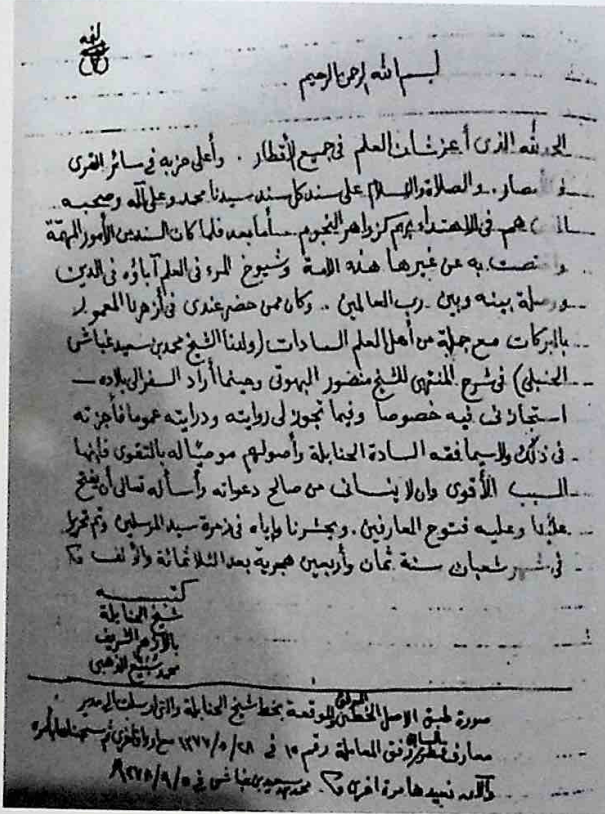 بسم الله الرحمن الرحيم
الحمد لله الذى أعز شأن العلم فى جميع الأقطار . وأعلى حزبه فى سائر القرى
والأمصار . والصلاة والسلام على سند كل سند سيدنا محمد وعلى آله وصحبه
هم فى الاهتداء بهم كزواهر النجوم أما بعد فلما كان السند من الأمور المهمة
واختصت به عن غيرها هذه الأمة وشيوخ المرء فى العلم آباؤه فى الدين
ووصلة بينه وبين رب العالمين .. وكان ممن حضر عندى فى أزهرنا المعمور
بالبركات مع جملة من أهل العلم السادات (ولدنا الشيخ محمد بن سعيد غباشى
الحنبلى) فى شرح المنتهى للشيخ منصور البهوتى وحينما أراد السفر الى بلاده
استجازنى فيه خصوصا وفيما تجوز لى روايته ودرايته عموما فأجزته
فى ذلك ولا سيما فقه السادة الحنابلة وأصولهم موصيا له بالتقوى فإنها
السبب الأقوى وان لا ينسانى من صالح دعواته وأسأله تعالى أن يفتح
علينا وعليه فتوح العارفين . ويحشرنا وإياه فى زمرة سيد المرسلين وتم تحريرا
فى شهر شعبان سنة ثمان وأربعين هجرية بعد الثلاثمائة والألف
كتبه
شيخ الحنابلة
بالأزهر الشريف
محمد الذهبى
صورة طبق الاصل الخطى والموقعة بخط شيخ الحنابلة والتى ارسلت الى مدير
معارف وفق المعاملة رقم ١٥ فى ١٣٧٧/٥/٢٨ مع اوراق اخرى ثم
والآن نعيدها مرة اخرى محمد بن سعيد بن غباشى فى ١٣٧٨/٩/٥